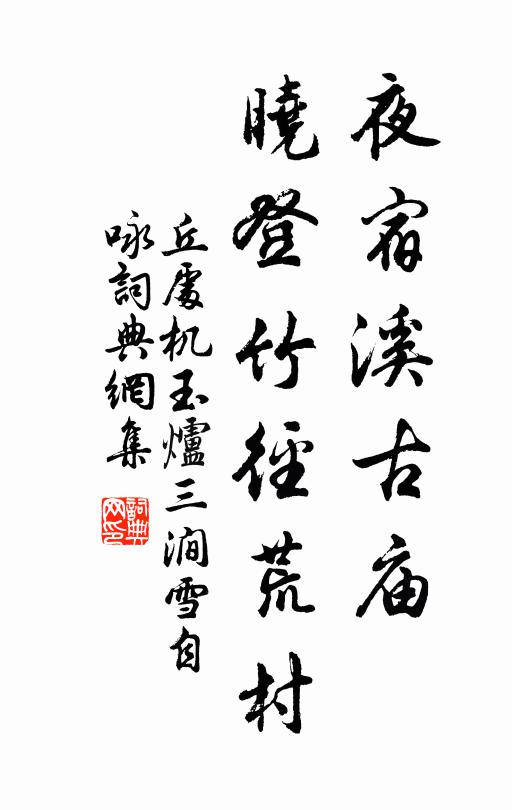 夜宿溪古庙
曉登竹徑荒村
丘處机玉爐三澗雪自
咏詞典網集
詞典
网印